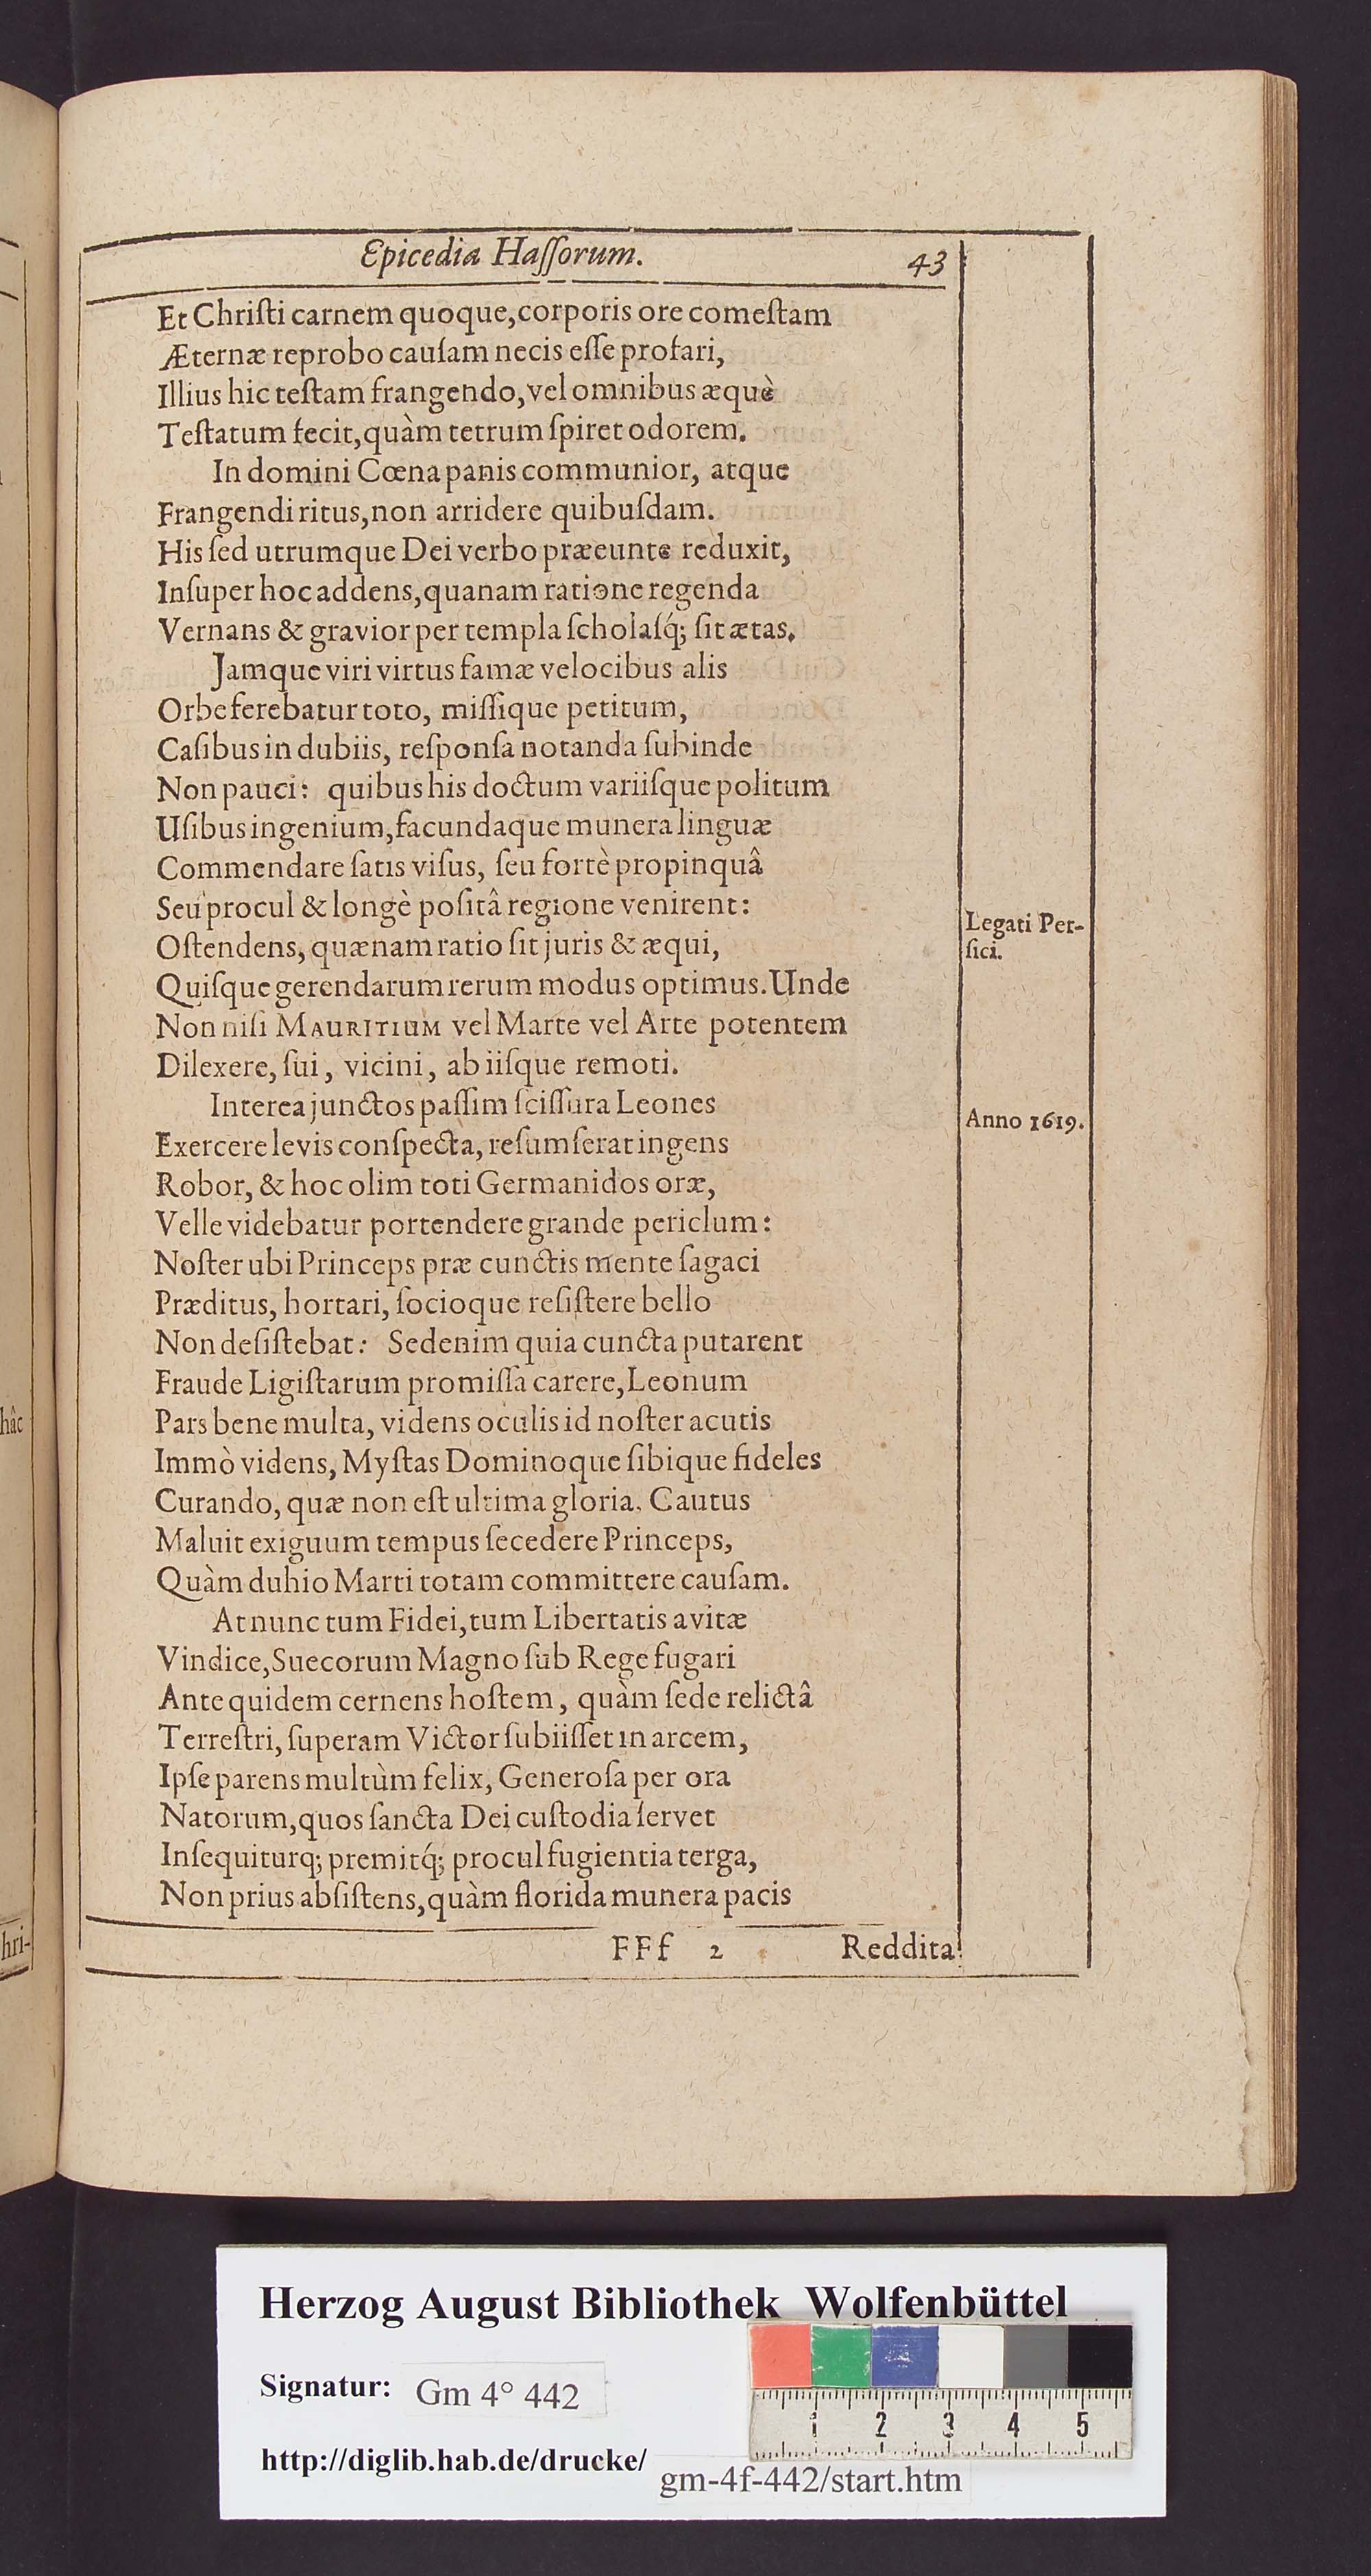 Epicedia Haſſorum. 43
Et Chriſti carnem quoque, corporis ore comeſtam
Æternæ reprobo cauſam necis eſſe profari,
Illius hic teſtam frangendo, vel omnibus æquè
Teſtatum fecit, quàm tetrum ſpiret odorem.
In domini Cœna panis communior, atque
Frangendi ritus, non arridere quibuſdam.
His ſed utrumque Dei verbo præeunte reduxit,
Inſuper hoc addens, quanam ratione regenda
Vernans & gravior per templa ſcholaſq́; ſit ætas.
Jamque viri virtus famæ velocibus alis
Orbe ferebatur toto, miſſique petitum,
Caſibus in dubiis, reſponſa notanda ſubinde
Non pauci: quibus his doctum variiſque politum
Uſibus ingenium, facundaque munera linguæ
Commendare ſatis viſus, ſeu fortè propinquâ
Seu procul & longè poſitâ regione venirent:
Legati Per-
ſici.
Oſtendens, quænam ratio ſit juris & æqui,
Quiſque gerendarum rerum modus optimus. Unde
Non niſi MAURITIUM vel Marte vel Arte potentem
Dilexere, ſui, vicini, ab iiſque remoti.
Interea junctos paſſim ſciſſura Leones
Anno 1619.
Exercere levis conſpecta, reſumſerat ingens
Robor, & hoc olim toti Germanidos oræ,
Velle videbatur portendere grande periclum:
Noſter ubi Princeps præ cunctis mente ſagaci
Præditus, hortari, ſocioque reſiſtere bello
Non deſiſtebat: Sedenim quia cuncta putarent
Fraude Ligiſtarum promiſſa carere, Leonum
Pars bene multa, videns oculis id noſter acutis
Immò videns, Myſtas Dominoque ſibique fideles
Curando, quæ non eſt ultima gloria. Cautus
Maluit exiguum tempus ſecedere Princeps,
Quàm duhio Marti totam committere cauſam.
At nunc tum Fidei, tum Libertatis avitæ
Vindice, Suecorum Magno ſub Rege fugari
Ante quidem cernens hoſtem, quàm ſede relictâ
Terreſtri, ſuperam Victor ſubiiſſet in arcem,
Ipſe parens multùm felix, Generoſa per ora
Natorum, quos ſancta Dei cuſtodia ſervet
Inſequiturq; premitq́; procul fugientia terga,
Non prius abſiſtens, quàm florida munera pacis
FFf 2 Reddita
hâc
hri-
Herzog August Bibliothek Wolfenbüttel
Signatur: Gm 4° 442
http://diglib.hab.de/drucke/
gm-4f-442/start.htm
1 2 3 4 5